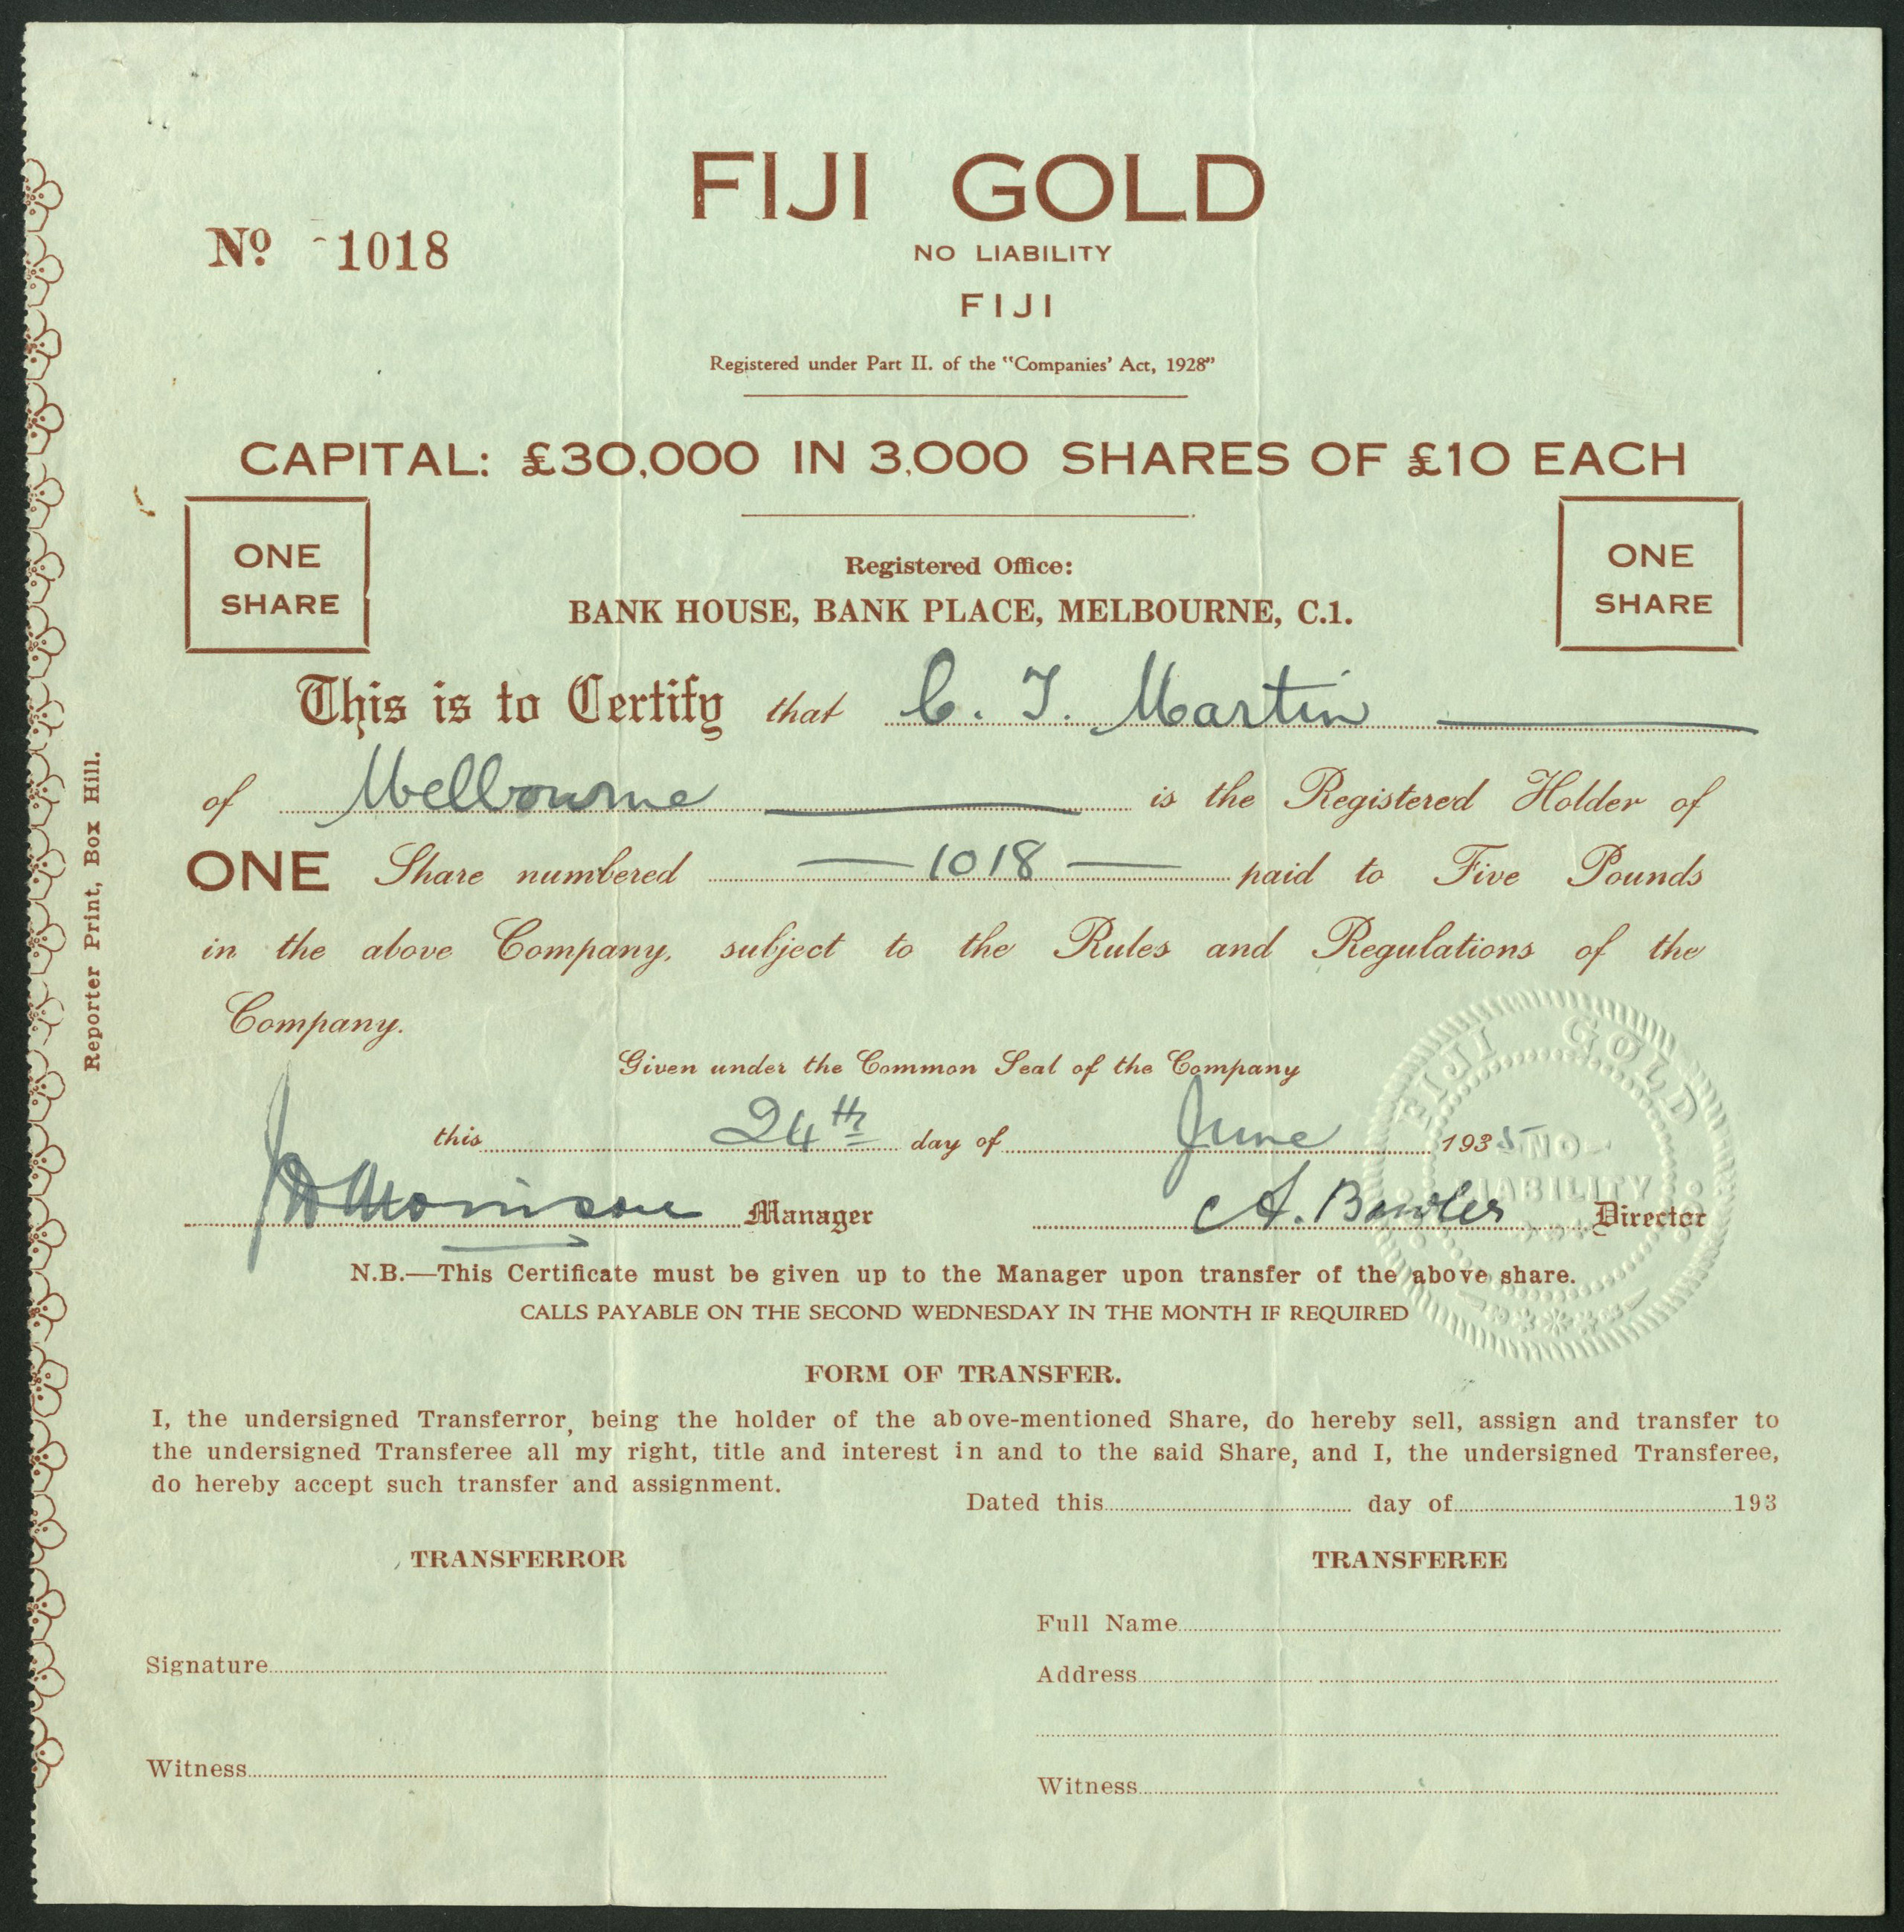 FIJI GOLD
NO LIABILITY
FIJI
Nº 1018
Registered under Part II. of the "Companies' Act, 1928"
CAPITAL: £30,000 IN 3,000 SHARES OF £10 EACH
ONE
SHARE
ONE
SHARE
Registered Office:
BANK HOUSE, BANK PLACE, MELBOURNE, C.1.
This is to Certify that C. T. Martin
of Melbourne is the Registered Holder of
ONE Share numbered —1018— paid to Five Pounds
in the above Company, subject to the Rules and Regulations of the
Company.
Given under the Common Seal of the Company
this 24th day of June 1935
Morrison Manager A. Bowles Director
FIJI GOLD
NO
LIABILITY
N.B.—This Certificate must be given up to the Manager upon transfer of the above share.
CALLS PAYABLE ON THE SECOND WEDNESDAY IN THE MONTH IF REQUIRED
FORM OF TRANSFER.
I, the undersigned Transferror, being the holder of the above-mentioned Share, do hereby sell, assign and transfer to
the undersigned Transferee all my right, title and interest in and to the said Share, and I, the undersigned Transferee,
do hereby accept such transfer and assignment.
Dated this day of 193
TRANSFERROR
TRANSFEREE
Full Name
Signature
Address
Witness
Witness
Reporter Print, Box Hill.